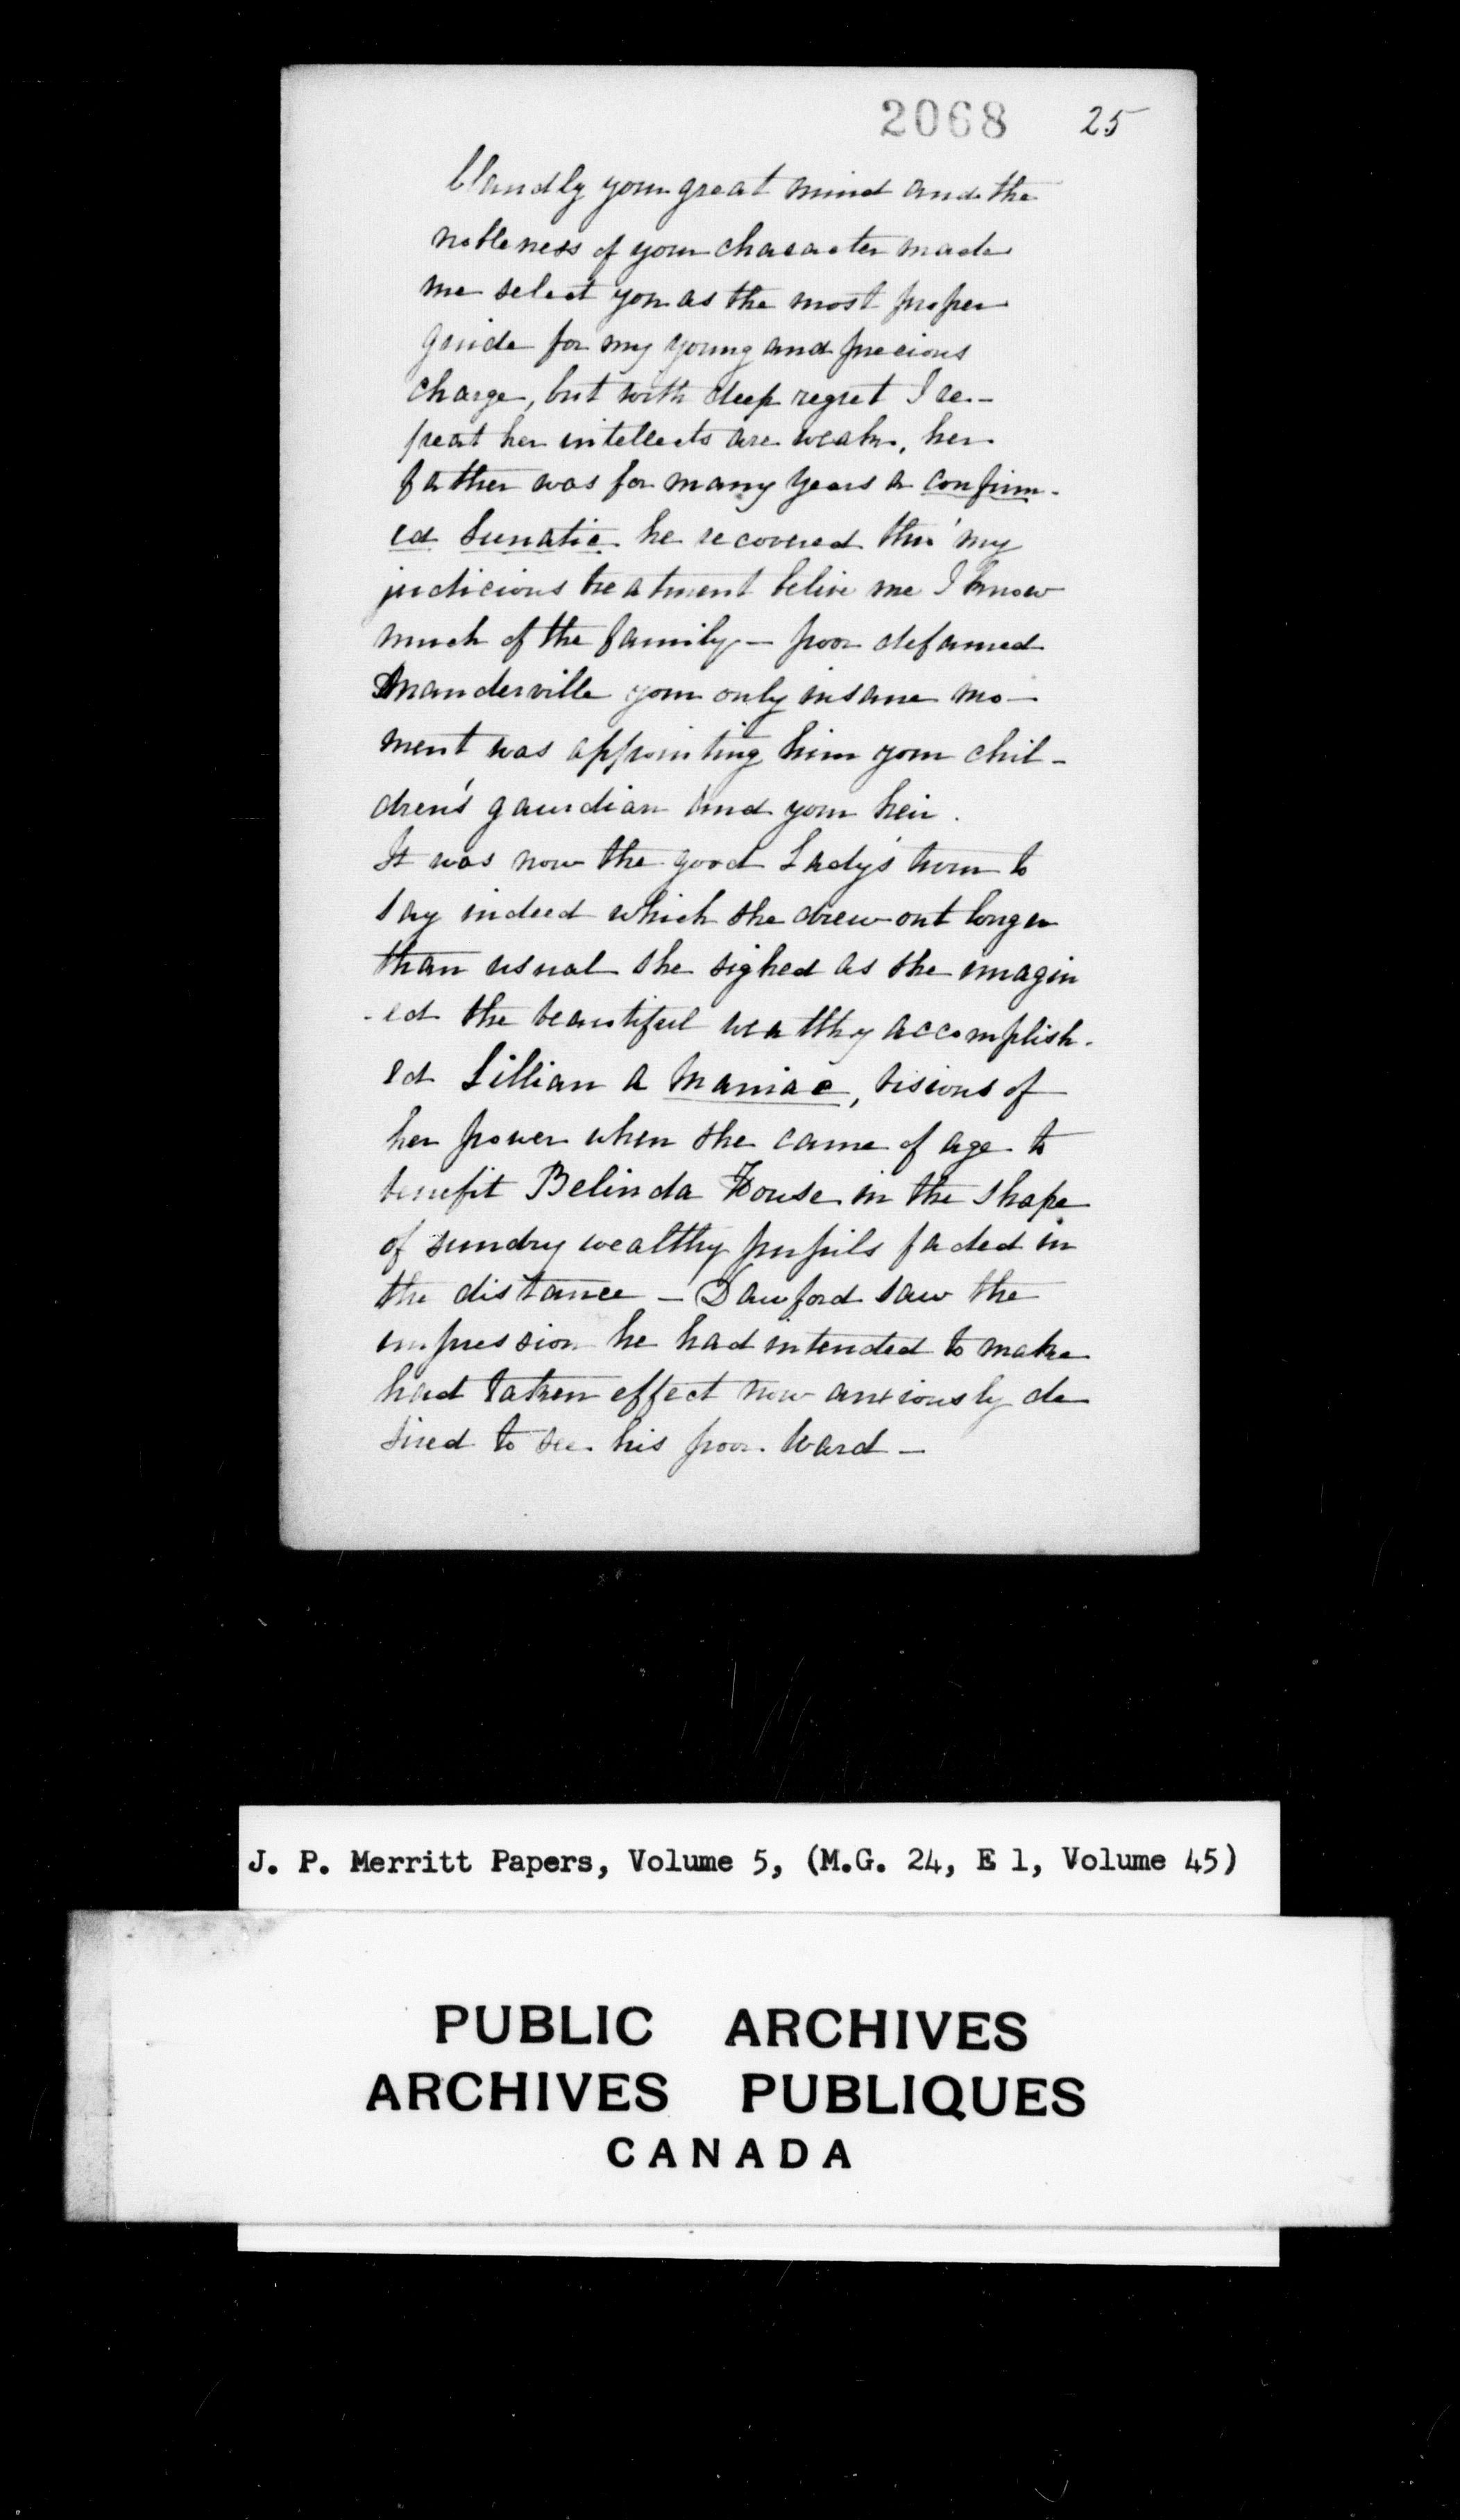 2068 25
blandly your great mind and the
nobleness of your character made
me select you as the most proper
guide for my young and precious
charge, but with deep regret I re-
peat her intellects are weak, her
father was for many years a confirm-
ed Lunatic he recovered thro' my
judicious treatment belive me I know
much of the family — poor defamed
Manderville your only insane mo-
ment was appointing him your chil-
dren's gaurdian and your heir.
It was now the good Lady's turn to
say indeed which she drew out longer
than usual she sighed as she imagin
-ed the beautiful wealthy accomplish-
ed Lillian a Maniac, visions of
her power when she came of age to
benefit Belinda House in the shape
of sundry wealthy pupils faded in
the distance — Dawford saw the
impression he had intended to make
had taken effect now anxiously de
sired to see his poor Ward —
J. P. Merritt Papers, Volume 5, (M.G. 24, E 1, Volume 45)
PUBLIC ARCHIVES
ARCHIVES PUBLIQUES
CANADA